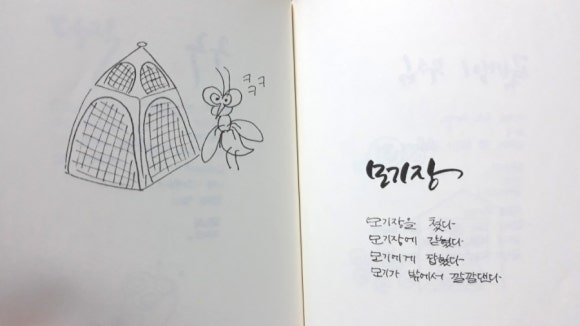 ㅋㅋㅋ
모기장
모기장을 쳤다
모기장에 갇혔다
모기에게 잡혔다
모기가 밖에서 깔깔댄다